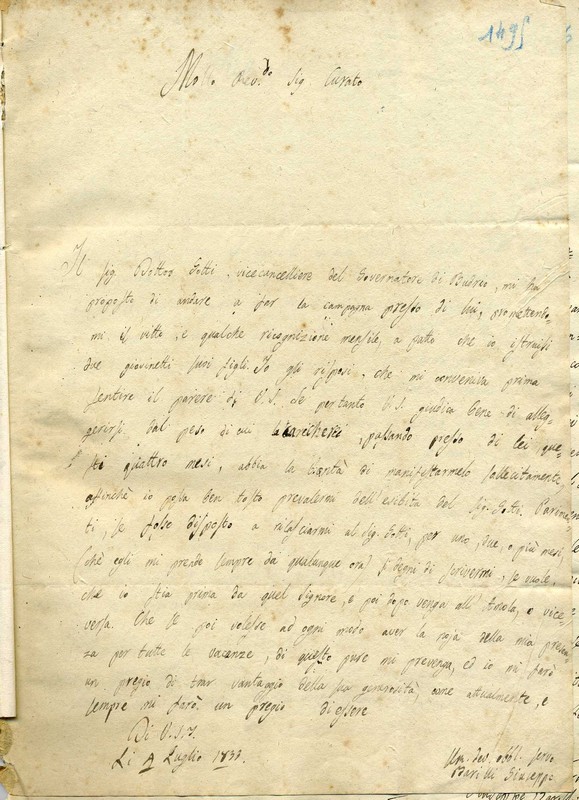 1495
Molto Rev.do Sig. Curato
Il Sig. Dottor Gotti, vicecancelliere del Governatore di Budrio, mi ha
proposto di andare a far la campagna presso di lui, promettendo-
mi il vitto, e qualche ricognizione mensile, a patto che io istruissi
due giovinetti suoi figli. Io gli risposi, che mi conveniva prima
sentire il parere di V.S. Se pertanto V.S. giudica bene di alleg-
gerirsi dal peso di cui la caricherei, passando presso di lei que-
sti quattro mesi, abbia la bontà di manifestarmelo sollecitamente,
affinchè io possa ben tosto prevalermi dell'esibita del Sig. Gotti. Parimen-
ti, se fosse disposto a rilasciarmi al Sig. Gotti, per uno, due, o più mesi,
(chè egli mi prende sempre da qualunque ora) si degni di scrivermi, se vuole,
che io stia prima da quel Signore, e poi dopo venga all'Isola, o vice-
versa. Che se poi volesse ad ogni modo aver la noja della mia presen-
za per tutte le vacanze, di questo pure mi prevenga, ed io mi farò
un pregio di trar vantaggio della sua generosità, come attualmente, e
sempre mi farò un pregio di essere
Di V.S.
Li 4 Luglio 183
Um. dev. obbl. servo
Barilli Giuseppe